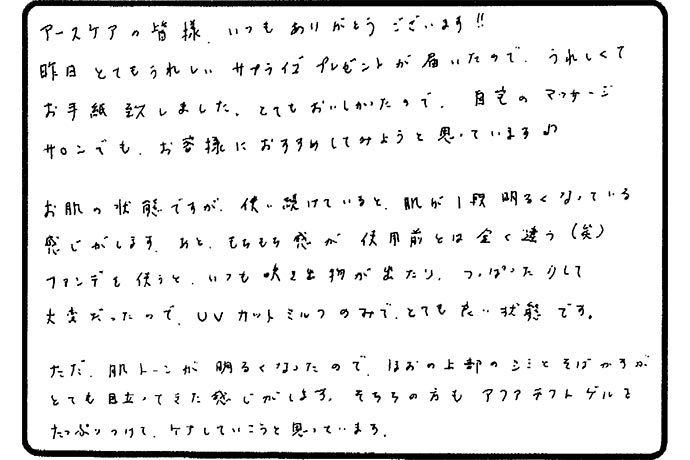 アースケアの皆様、いつもありがとうございます!!
昨日とてもうれしいサプライズプレゼントが届いたので、うれしくて
お手紙致しました。とてもおいしかったので、自宅のマッサージ
サロンでも、お客様におすすめしてみようと思っています♪
お肌の状態ですが、使い続けていると、肌が1段明るくなっている
感じがします。あと、もちもち感が使用前とは全く違う(笑)
ファンデを使うと、いつも吹き出物が出たり、つっぱったりして
大変だったので、UVカットミルクのみで、とても良い状態です。
ただ、肌トーンが明るくなったので、ほおの上部のシミとそばかすが
とても目立ってきた感じがします。そちらの方もアクアテクトゲルを
たっぷりつけて、ケアしていこうと思っています。